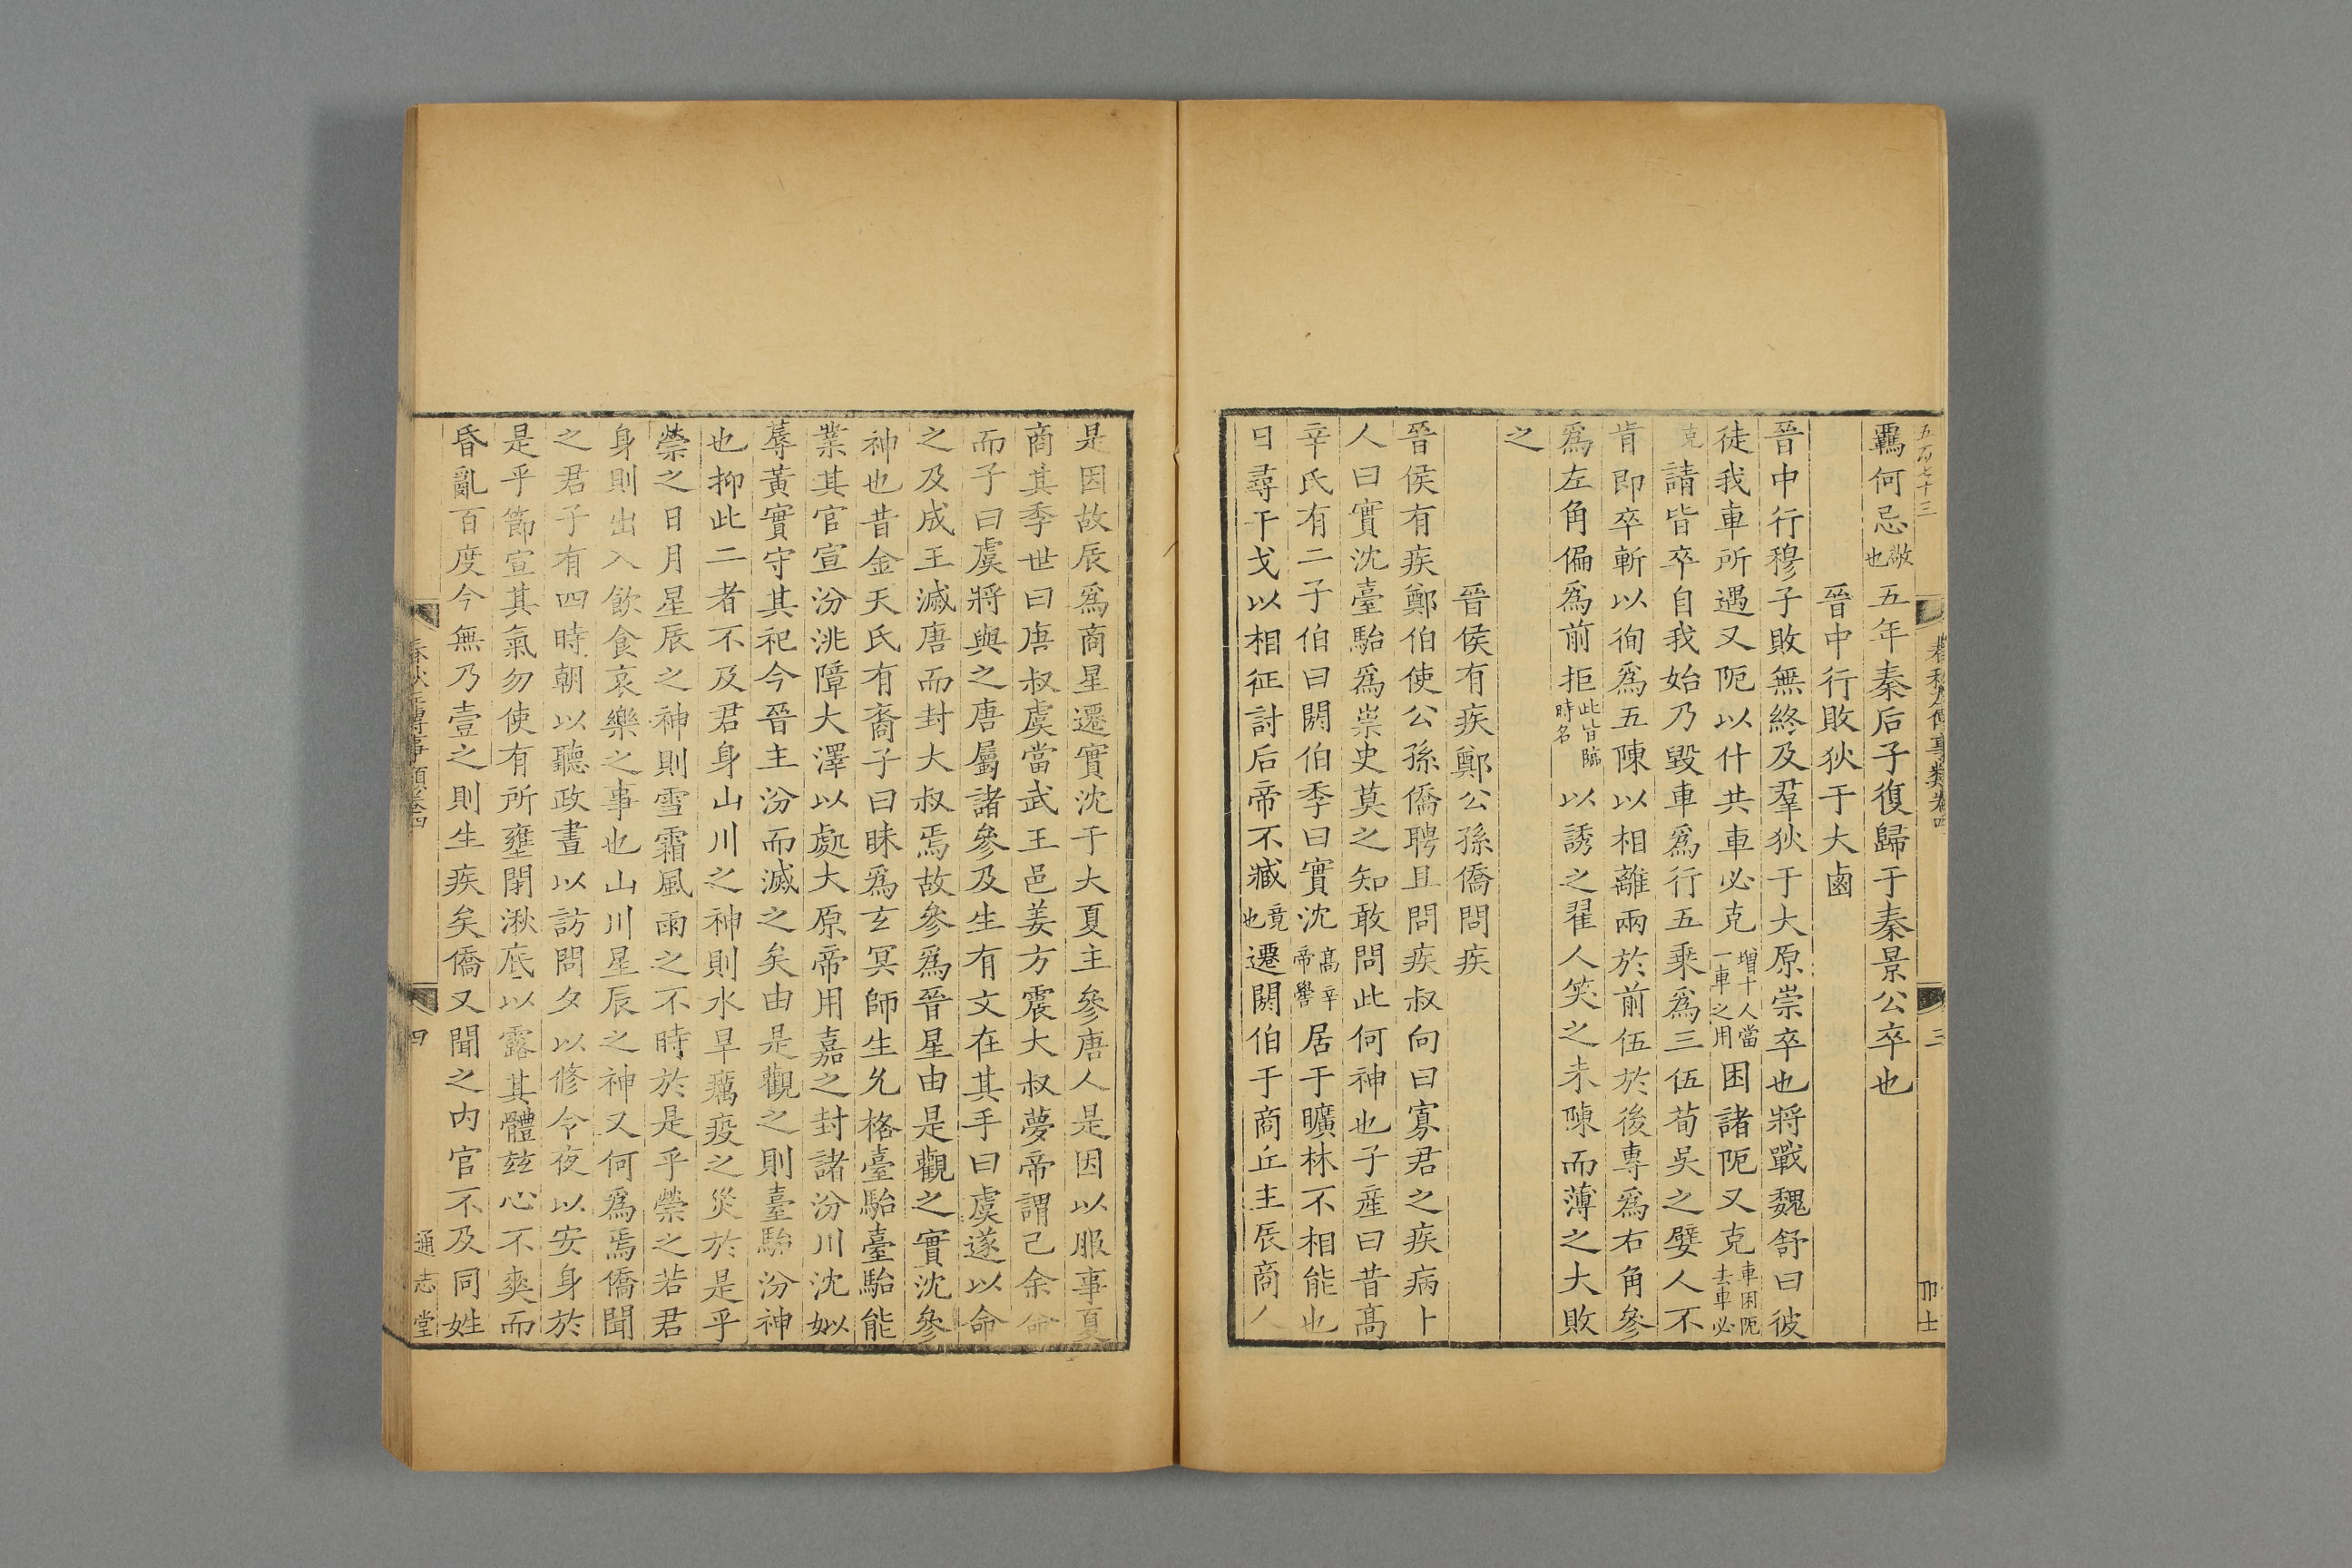 五百七十三
春秋左傳事類卷四 三
羈何忌敵也五年秦后子復歸于秦景公卒也
晉中行敗狄于大鹵
晉中行穆子敗無終及羣狄于大原崇卒也將戰魏舒曰彼
徒我車所遇又阨以什共車必克增十人當一車之用困諸阨又克車困阨去車必
克請皆卒自我始乃毀車爲行五乘爲三伍荀吳之嬖人不
肯即卒斬以徇爲五陳以相離兩於前伍於後專爲右角參
爲左角偏爲前拒此皆臨時名以誘之翟人笑之未陳而薄之大敗
之
晉侯有疾鄭公孫僑問疾
晉侯有疾鄭伯使公孫僑聘且問疾叔向曰寡君之疾病卜
人曰實沈臺駘爲崇史莫之知敢問此何神也子產曰昔高
辛氏有二子伯曰閼伯季曰實沈高辛帝嚳居于曠林不相能也
日尋干戈以相征討后帝不臧竟也遷閼伯于商丘主辰商人
是因故辰爲商星遷實沈于大夏主參唐人是因以服事夏
商其季世曰唐叔虞當武王邑姜方震大叔夢帝謂己余命
而子曰虞將與之唐屬諸參及生有文在其手曰虞遂以命
之及成王滅唐而封大叔焉故參爲晉星由是觀之實沈參
神也昔金天氏有裔子曰昧爲玄冥師生允格臺駘臺駘能
業其官宣汾洮障大澤以處大原帝用嘉之封諸汾川沈姒
蓐黃實守其祀今晉主汾而滅之矣由是觀之則臺駘汾神
也抑此二者不及君身山川之神則水旱癘疫之災於是乎
禜之日月星辰之神則雪霜風雨之不時於是乎禜之若君
身則出入飲食哀樂之事也山川星辰之神又何爲焉僑聞
之君子有四時朝以聽政晝以訪問夕以修令夜以安身於
是乎節宣其氣勿使有所壅閉湫底以露其體玆心不爽而
昏亂百度今無乃壹之則生疾矣僑又聞之内官不及同姓
春秋左傳事類卷四 四 通志堂